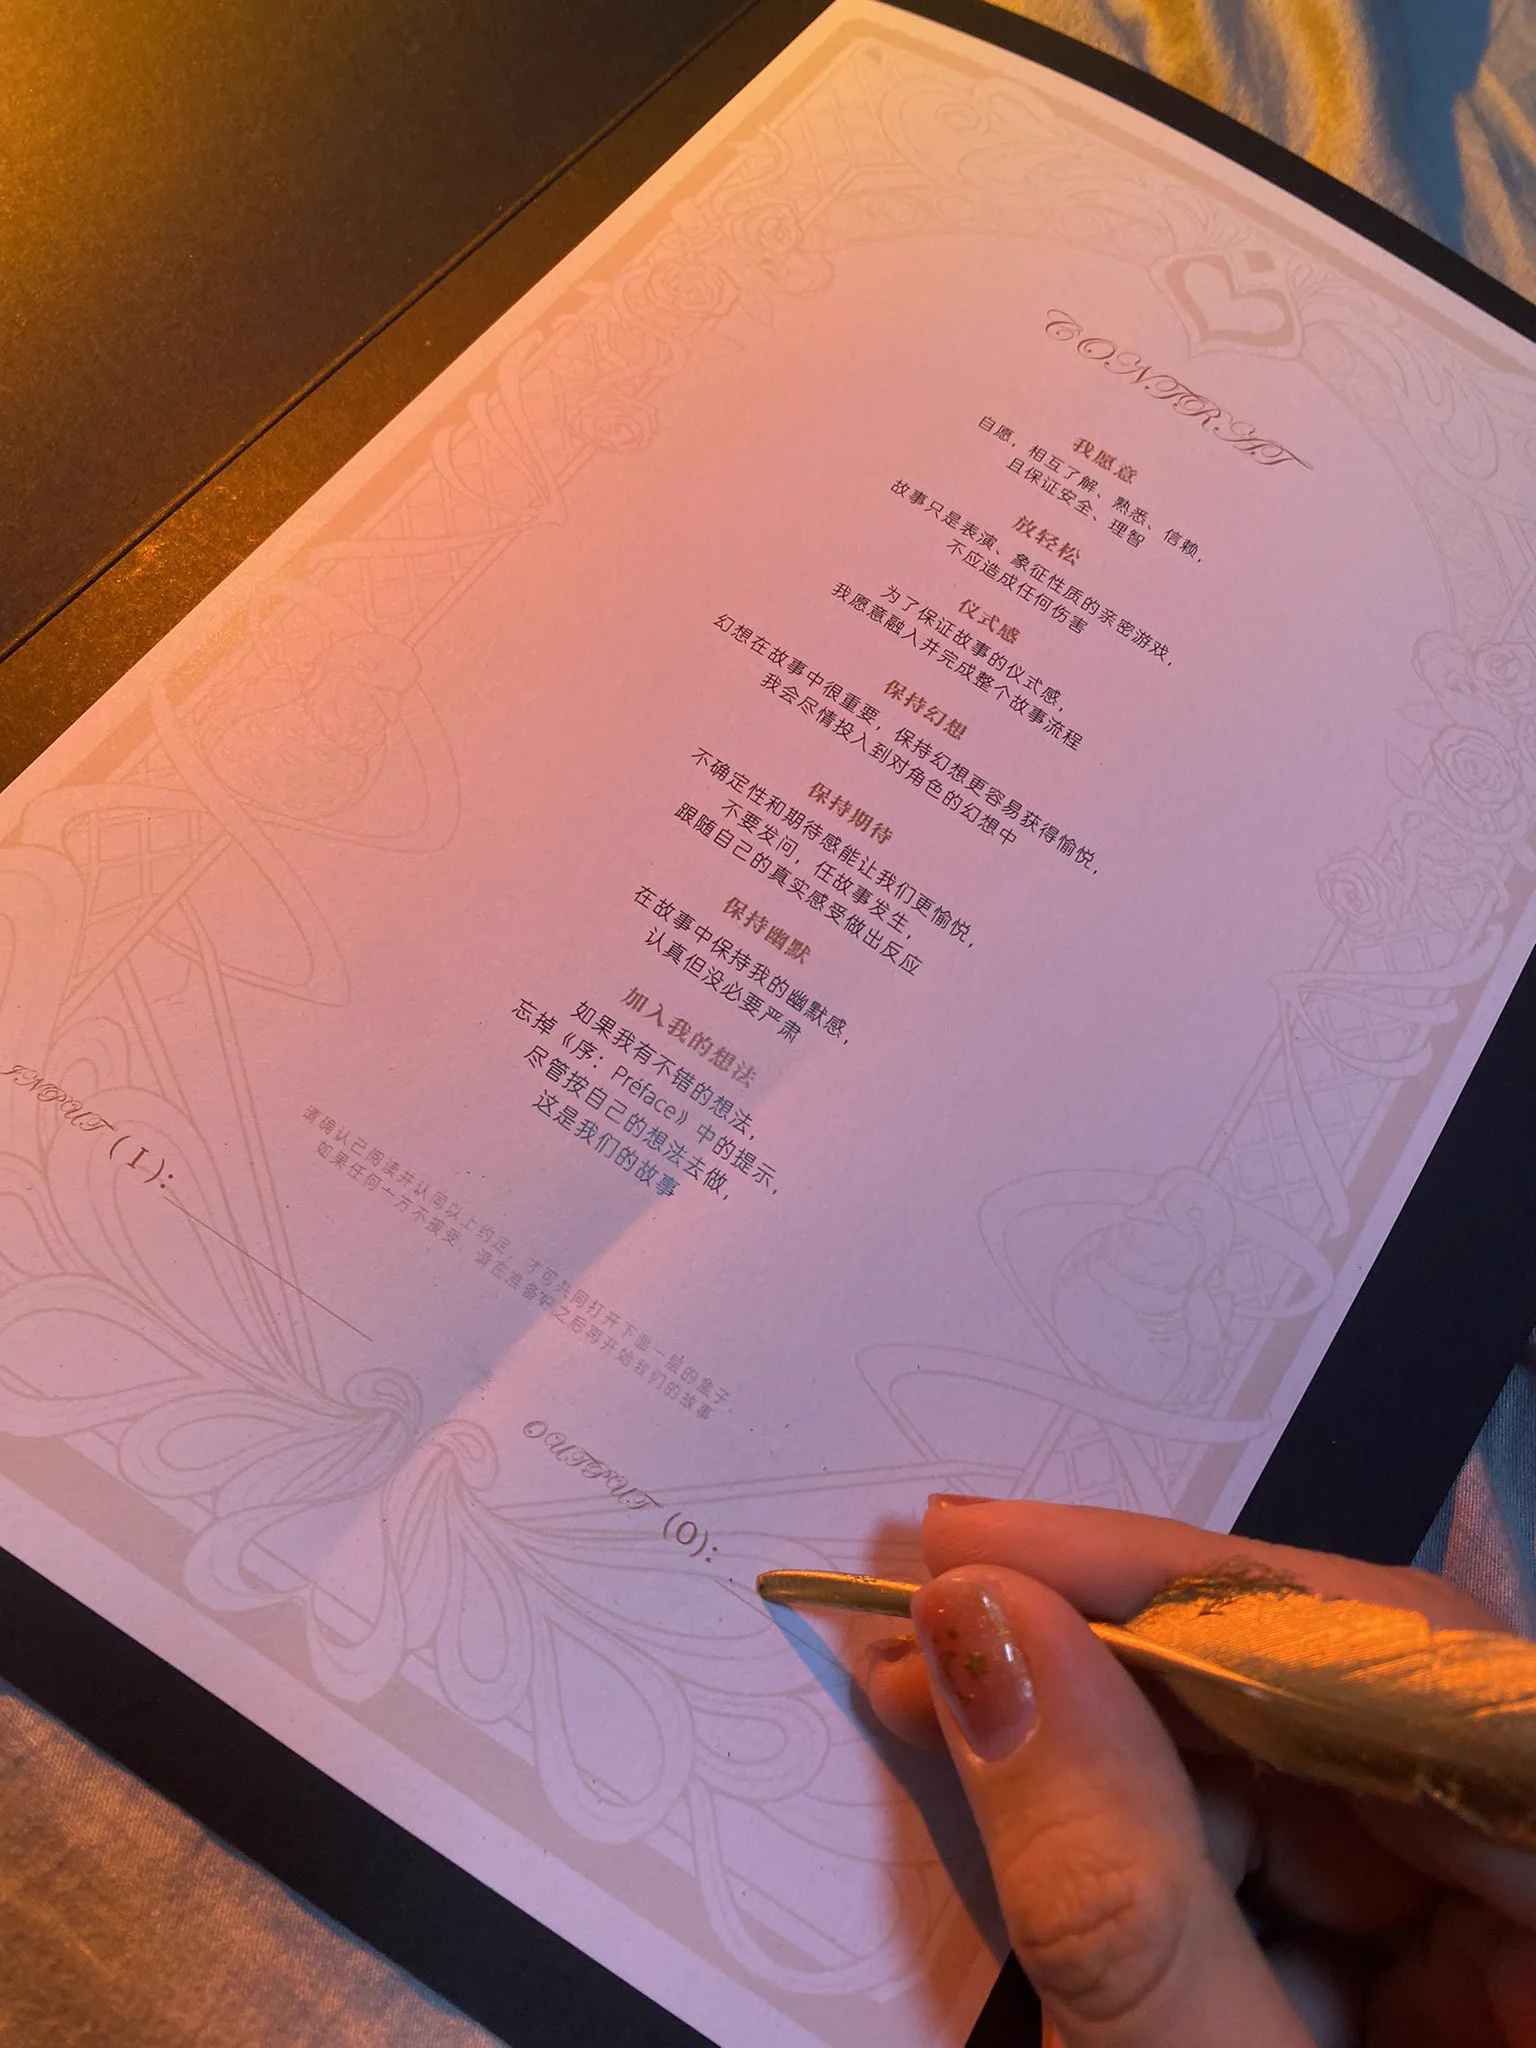 CONTRAT
我愿意
自愿，相互了解、熟悉、信赖，
且保证安全、理智
放轻松
故事只是表演、象征性质的亲密游戏，
不应造成任何伤害
仪式感
为了保证故事的仪式感，
我愿意融入并完成整个故事流程
保持幻想
幻想在故事中很重要，保持幻想更容易获得愉悦，
我会尽情投入到对角色的幻想中
保持期待
不确定性和期待感能让我们更愉悦，
不要发问，任故事发生，
跟随自己的真实感受做出反应
保持幽默
在故事中保持我的幽默感，
认真但没必要严肃
加入我的想法
如果我有不错的想法，
忘掉《序：Préface》中的提示，
尽管按自己的想法去做，
这是我们的故事
请确认已阅读并认同以上约定，才可共同打开下面一层的盒子，
如果任何一方不接受，请在准备好之后再开始我们的故事
INPUT (I):
OUTPUT (O):